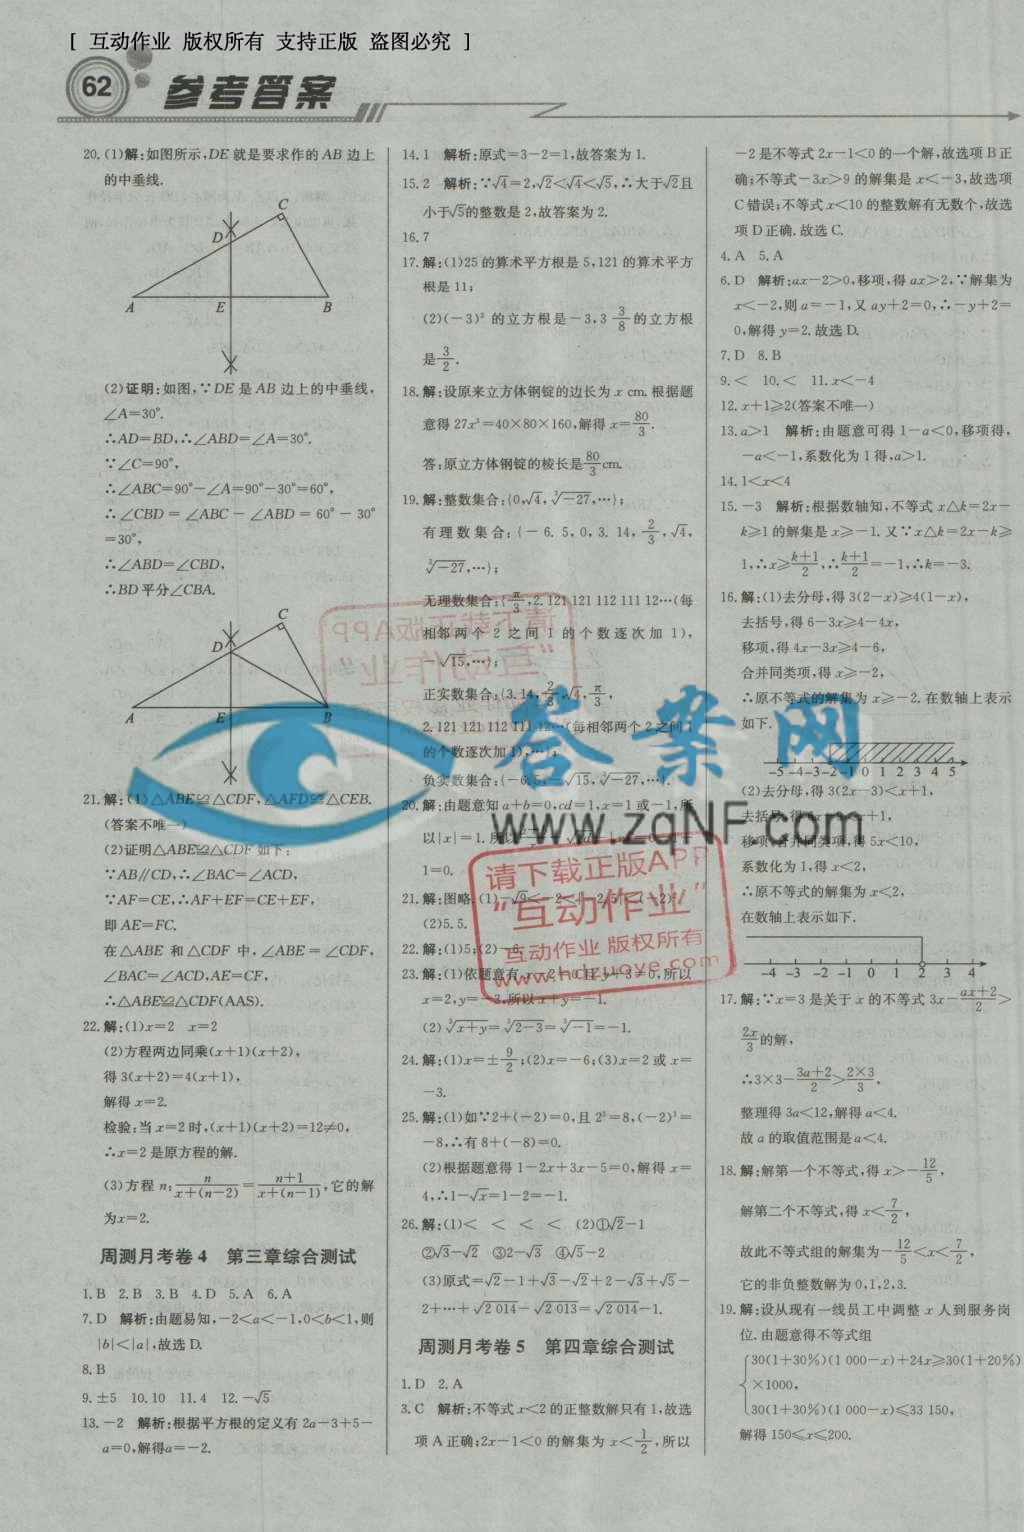 [ 互动作业 版权所有 支持正版 盗图必究 ]
62 参考答案
20. (1)解:如图所示,DE 就是要求作的 AB 边上
的中垂线.
C
D
A E B
(2)证明:如图,∵DE 是 AB 边上的中垂线,
∠A=30°.
∴AD=BD,∴∠ABD=∠A=30°.
∵∠C=90°,
∴∠ABC=90°-∠A=90°-30°=60°,
∴∠CBD=∠ABC-∠ABD=60°-30°
=30°,
∴∠ABD=∠CBD,
∴BD平分∠CBA.
C
D
A E B
21. 解:(1)△ABE≌△CDF,△AFD≌△CEB.
(答案不唯一)
(2)证明△ABE≌△CDF 如下:
∵AB∥CD,∴∠BAC=∠ACD,
∵AF=CE,∴AF+EF=CE+EF,
即 AE=FC.
在△ABE 和△CDF 中,∠ABE=∠CDF,
∠BAC=∠ACD,AE=CF,
∴△ABE≌△CDF(AAS).
22. 解:(1)x=2 x=2
(2)方程两边同乘(x+1)(x+2),
得 3(x+2)=4(x+1),
解得 x=2.
检验:当 x=2 时,(x+1)(x+2)=12≠0,
∴x=2 是原方程的解.
(3)方程 n: n/(x+(n-2))=(n+1)/(x+(n-1)),它的解
为x=2.
周测月考卷 4 第三章综合测试
1. B 2. B 3. B 4. D 5. A 6. A
7. D 解析:由题易知,-2<a<-1,0<b<1,则
|b|<|a|,故选D.
8. B
9. ±5 10. 10 11. 4 12. -√5
13. -2 解析:根据平方根的定义有 2a-3+5-
a=0,解得a=-2.
14. 1 解析:原式=3-2=1,故答案为 1.
15. 2 解析:∵√4=2,√2<√4<√5,∴大于√2且
小于√5的整数是 2,故答案为 2.
16. 7
17. 解:(1)25 的算术平方根是 5,121 的算术平方
根是 11;
(2)(-3)³ 的立方根是-3,3 3/8 的立方根
是 3/2.
18. 解:设原来立方体钢锭的边长为 x cm. 根据题
意得 27x³=40×80×160,解得 x=80/3.
答:原立方体钢锭的棱长是80/3cm.
19. 解:整数集合:{0,√4,∛-27,…};
有理数集合:{-6.5,0,3.14,2/3,√4,
∛-27,…};
无理数集合:{π/3,2.121 121 112 111 12…(每
相邻两个 2 之间 1 的个数逐次加 1),
-√15,…};
正实数集合:{3.14,2/3,√4,π/3,
2.121 121 112 111 12…(每相邻两个 2 之间 1
的个数逐次加 1),…};
负实数集合:{-6.5,-√15,∛-27,…}.
20. 解:由题意知 a+b=0,cd=1,x=1 或-1,所
以|x|=1.所以
1=0.
21. 解:图略.(1)-√9<
(2)5.5.
22. 解:(1)5;(2)-6.
23. 解:(1)依题意有 x-2=0 且 y+3=0,所以
x=2,y=-3,所以 x+y=-1.
(2)∛x+y=∛2-3=∛-1=-1.
24. 解:(1)x=±9/2;(2)x=-6;(3)x=2 或 x=
-3.
25. 解:(1)如∵2+(-2)=0,且 2³=8,(-2)³=
-8,∴有 8+(-8)=0.
(2)根据题意得 1-2x+3x-5=0,解得 x=
4,∴1-√x=1-2=-1.
26. 解:(1)< < < < (2)①√2-1
②√3-√2 ③2-√3 ④√5-2
(3)原式=√2-1+√3-√2+2-√3+√5-
2+…+√2 014-√2 013=√2 014-1.
周测月考卷 5 第四章综合测试
1. D 2. A
3. C 解析:不等式 x<2 的正整数解只有 1,故选
项 A 正确;2x-1<0 的解集为 x<1/2,所以
-2 是不等式 2x-1<0 的一个解,故选项 B 正
确;不等式-3x>9 的解集是 x<-3,故选项
C 错误;不等式 x<10 的整数解有无数个,故选
项 D 正确. 故选 C.
4. A 5. A
6. D 解析:ax-2>0,移项,得 ax>2,∵解集为
x<-2,则 a=-1,又 ay+2=0,∴-y+2=
0,解得 y=2. 故选 D.
7. D 8. B
9. < 10. < 11. x<-4
12. x+1≥2(答案不唯一)
13. a>1 解析:由题意可得 1-a<0,移项得,
-a<-1,系数化为 1 得,a>1.
14. 1<x<4
15. -3 解析:根据数轴知,不等式 x△k=2x-
k≥1 的解集是 x≥-1. 又∵x△k=2x-k≥
1,∴x≥(k+1)/2,∴(k+1)/2=-1,∴k=-3.
16. 解:(1)去分母,得 3(2-x)≥4(1-x),
去括号,得 6-3x≥4-4x,
移项,得 4x-3x≥4-6,
合并同类项,得 x≥-2,
∴原不等式的解集为 x≥-2. 在数轴上表示
如下.
-5 -4 -3 -2 -1 0 1 2 3 4 5
(2)去分母,得 3(2x-3)<x+1,
去括号,得 6x-9<x+1,
移项,合并同类项,得 5x<10,
系数化为 1,得 x<2,
∴原不等式的解集为 x<2,
在数轴上表示如下.
-4 -3 -2 -1 0 1 2 3 4
17. 解:∵x=3 是关于 x 的不等式 3x-(ax+2)/2>
2x/3的解,
∴3×3-(3a+2)/2>(2×3)/3,
整理得 3a<12,解得 a<4.
故 a 的取值范围是 a<4.
18. 解:解第一个不等式,得 x>-12/5,
解第二个不等式,得 x<7/2,
故此不等式组的解集为-12/5<x<7/2,
它的非负整数解为 0,1,2,3.
19. 解:设从现有一线员工中调整 x 人到服务岗
位. 由题意得不等式组
{30(1+30%)(1 000-x)+24x≥30(1+20%)
×1000,
30(1+30%)(1 000-x)≤33 150,
解得 150≤x≤200.
答案网
www.zqNF.com
请下载正版APP
"互动作业"
互动作业 版权所有
www.hdzuoye.com
请下载正版APP
"互动作业"